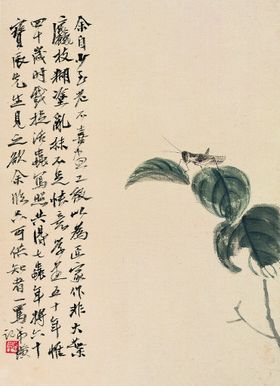 余自少至老不喜畫工緻以為匠家作非大葉
麤枝糊塗亂抹不足快意學畫五十年惟
四十歲時戲捉活蟲寫照共得七蟲年將六十
寶辰先生見之欲余臨只可供知者一罵弟璜
記